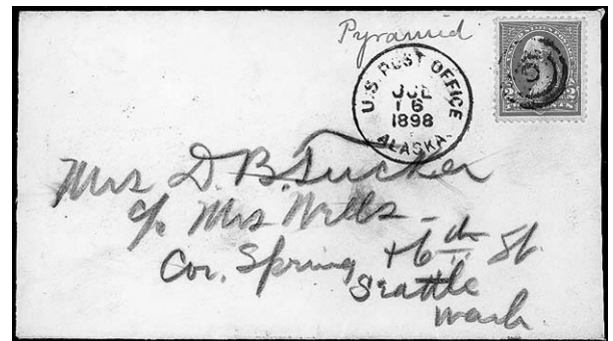 Pyramid
U.S. POST OFFICE
JUL
16
1898
ALASKA.
Mrs D. B. Tucker
c/o Mrs Wells -
Cor. Spring + 6th St.
Seattle
Wash.